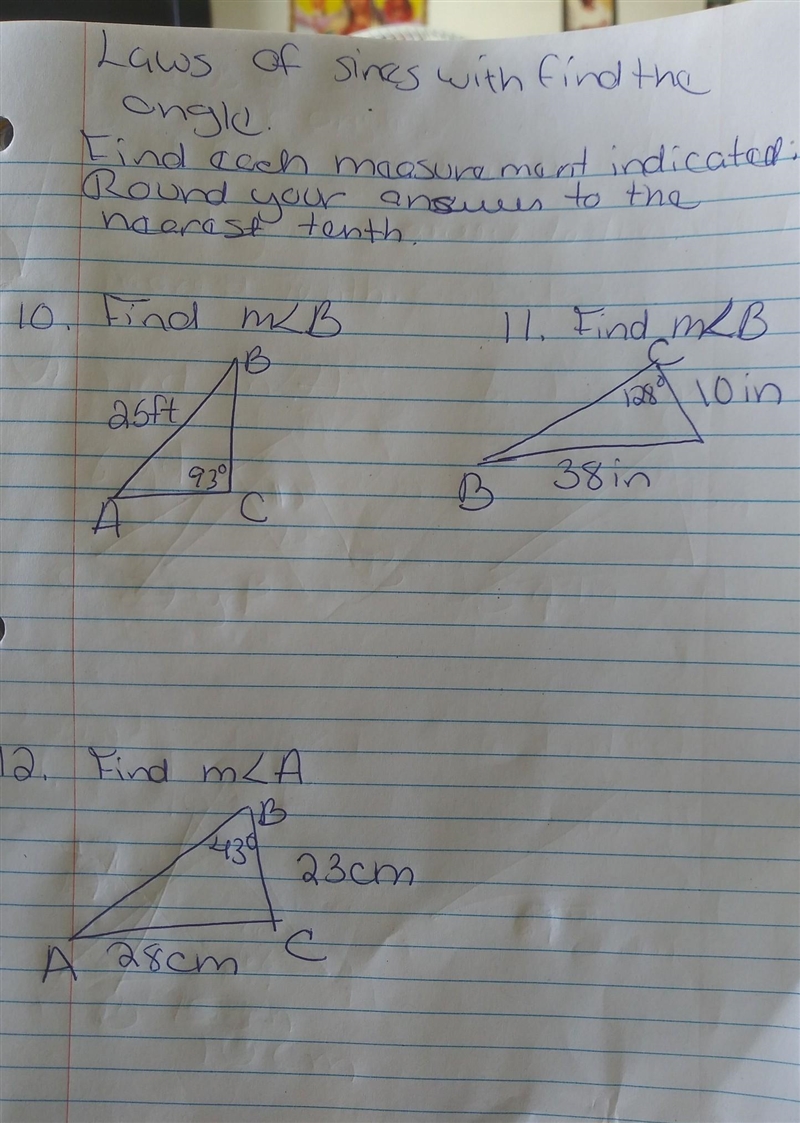 Laws of sines with find the
angle.
Find each measurement indicated.
Round your answer to the
nearest tenth.
10. Find m<B
11. Find m<B
B
25ft
93°
A
C
C
128°
10in
B
38in
12. Find m<A
B
43°
23cm
A
28cm
C